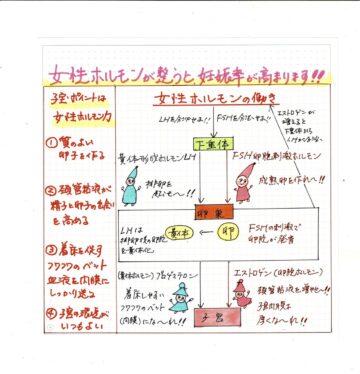 女性ホルモンが整うと、妊娠率が高まります!!
子宝ポイントは
女性ホルモン力
① 質の よい
卵子を作る
② 頸管粘液が
精子と卵子の出会い
を高める
③ 着床を促す
フワフワのベット
血液を内膜に
しっかり送る
④ 子宮の環境が
いつもよい
女性ホルモンの働き
LHを分泌せよ!!
FSHを分泌せよ!!
エストロゲンが
増えると
下垂体から
下垂体
黄体形成ホルモンLH
FSH卵胞刺激ホルモン
排卵を
起こせ〜!!
成熟卵を作れ〜!!
卵巣
LHは
排卵後の卵胞
を黄体化
黄体
卵
FSHの刺激で
卵胞が発育
(黄体ホルモン)プロゲステロン
エストロゲン(卵胞ホルモン)
着床しやすい
フワフワのベット
(内膜)にな〜れ!!
頸管粘液を増やせ〜!!
子宮内膜よ
厚くな〜れ!!
子宮